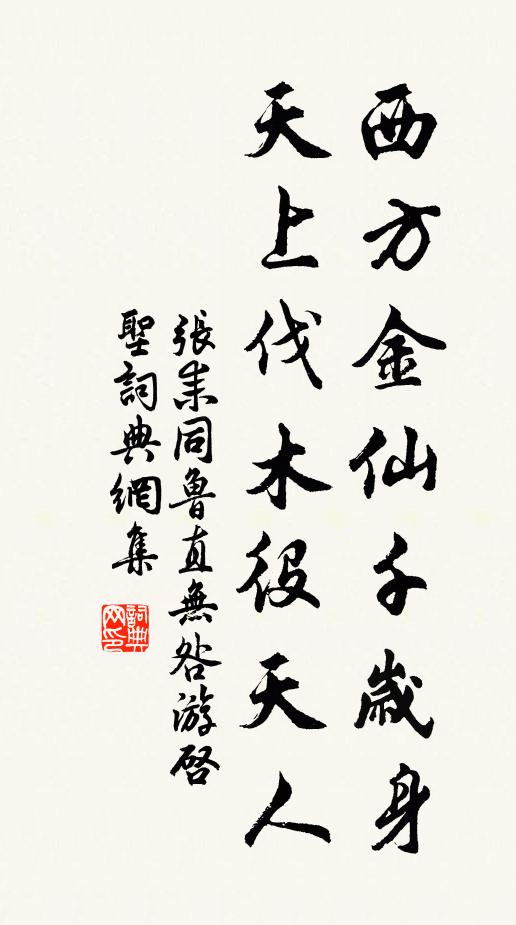 西方金仙千歲身
天上伐木役天人
張耒同魯直無咎游啓
聖詞典網集
詞典網印